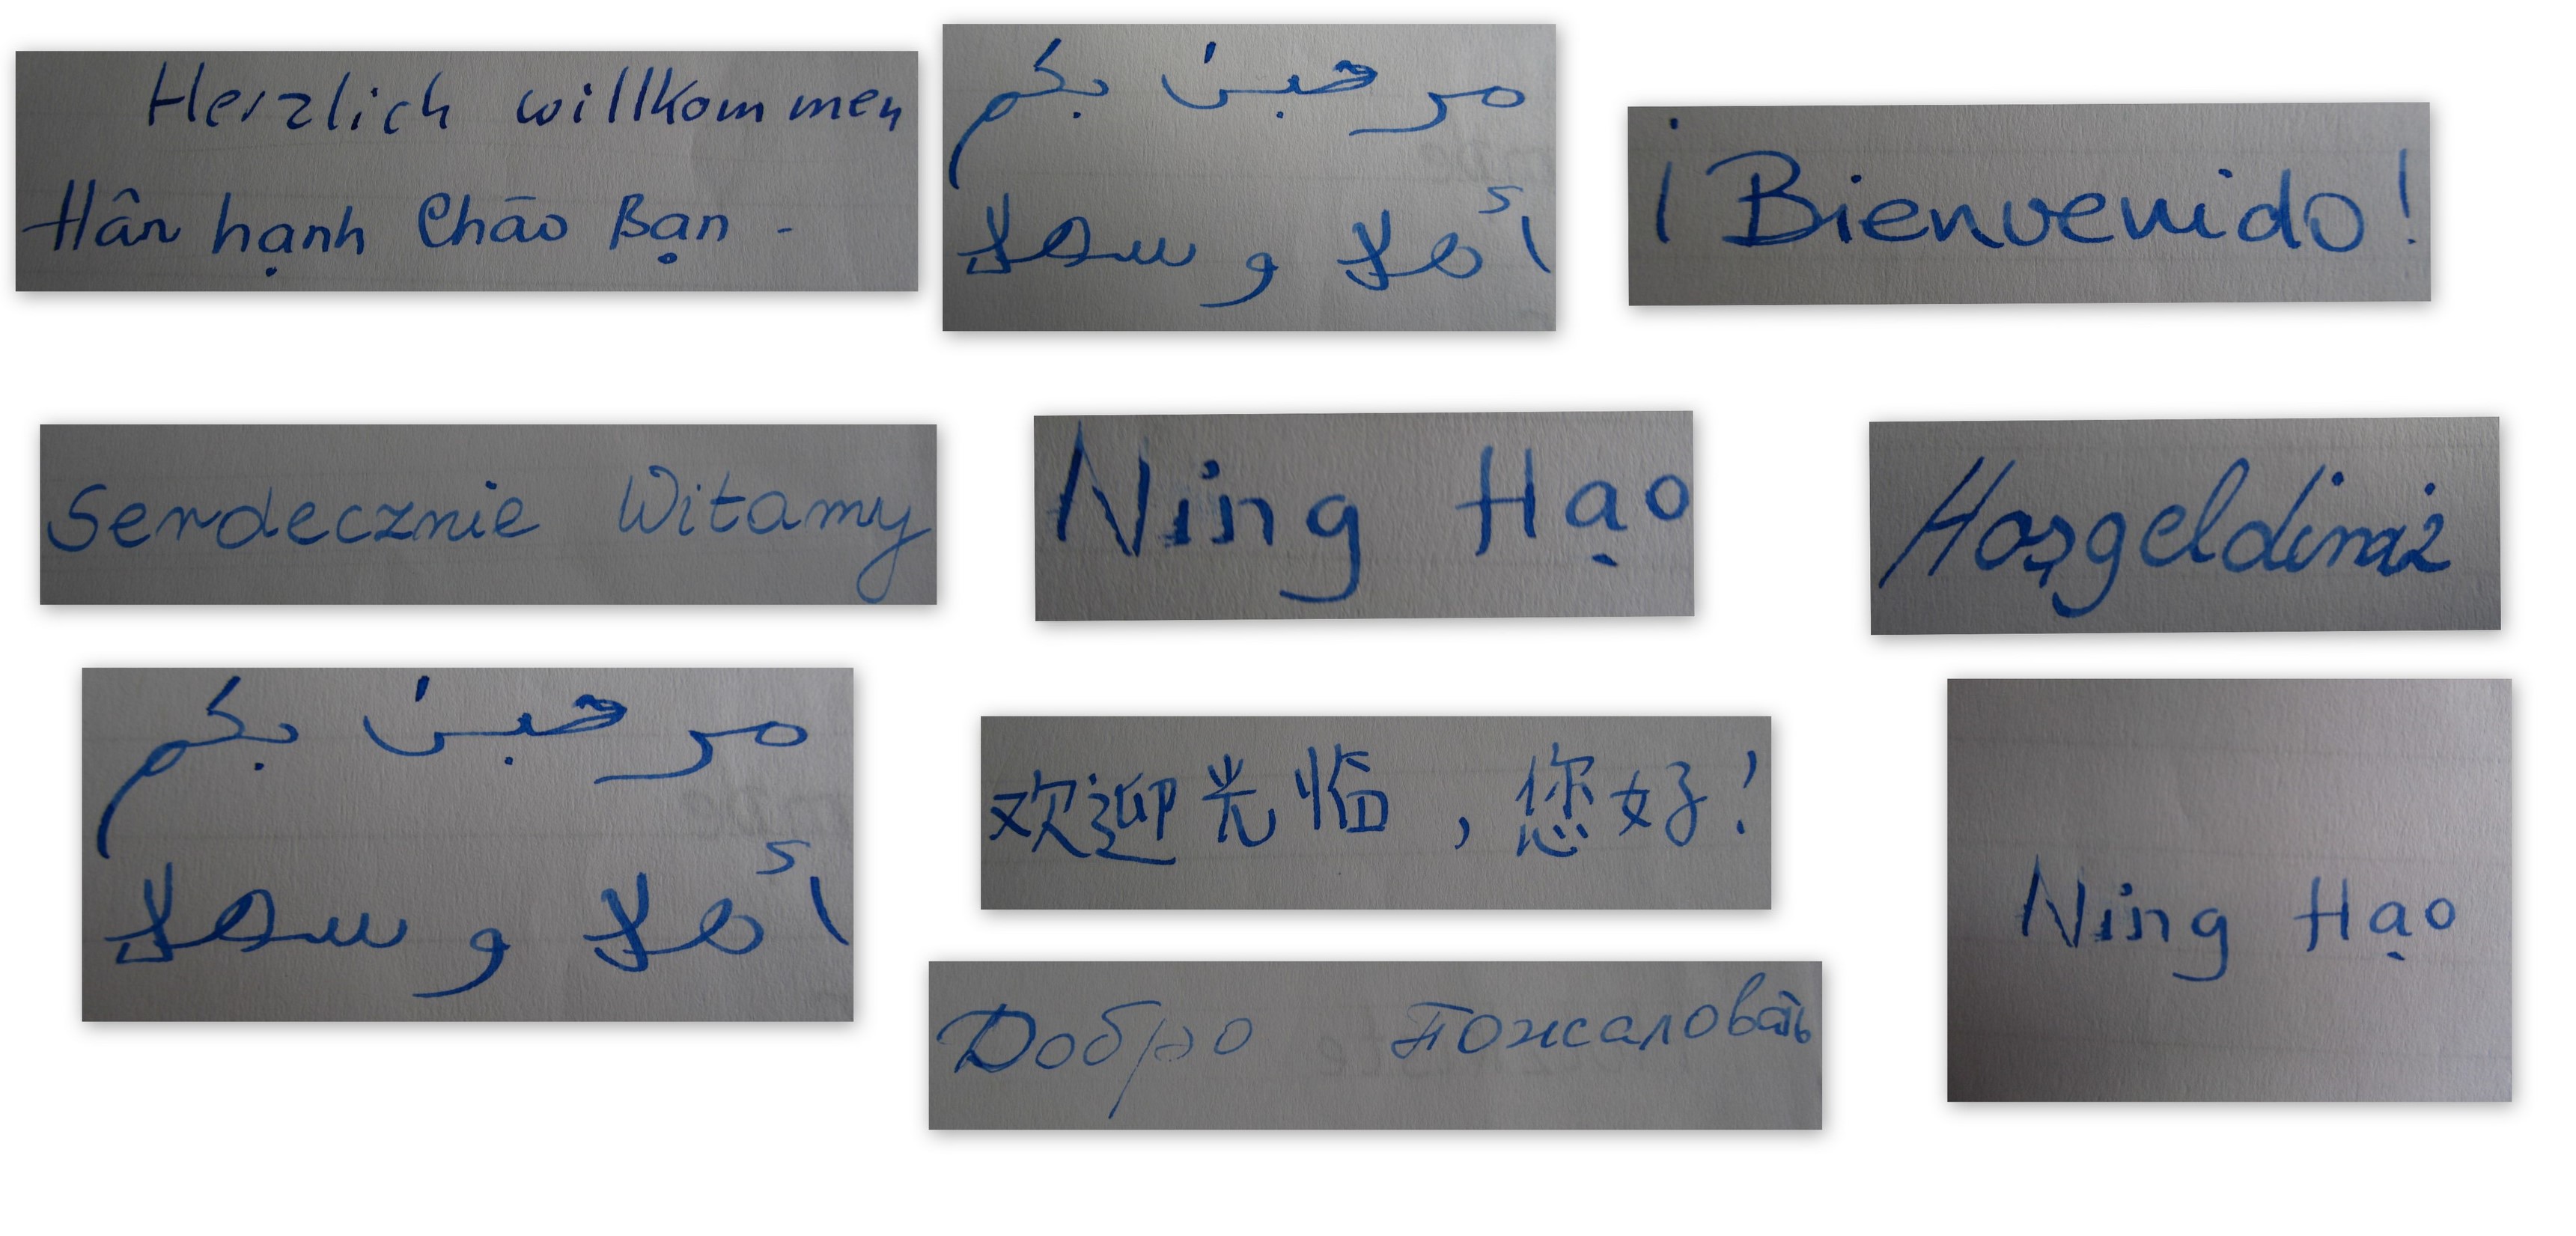 Herzlich willkommen
Hân hạnh Chāo Bạn -
مرحبن بكم
أهلا و سهلا
¡Bienvenido!
Serdecznie Witamy
Ning Hạo
Hoşgeldiniz
مرحبن بكم
أهلا و سهلا
欢迎光临，您好！
Ning Hạo
Добро Пожаловать